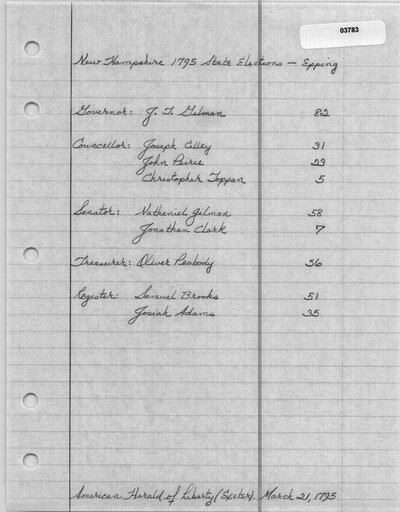 03783
New Hampshire 1795 State Elections — Epping
Governor: J. T. Gilman 82
Councellor: Joseph Cilley 31
John Peirce 23
Christopher Toppan 5
Senator: Nathaniel Gilman 58
Jonathan Clark 7
Treasurer: Oliver Peabody 56
Register: Samuel Brooks 51
Josiah Adams 35
American Herald of Liberty (Exeter). March 21, 1795